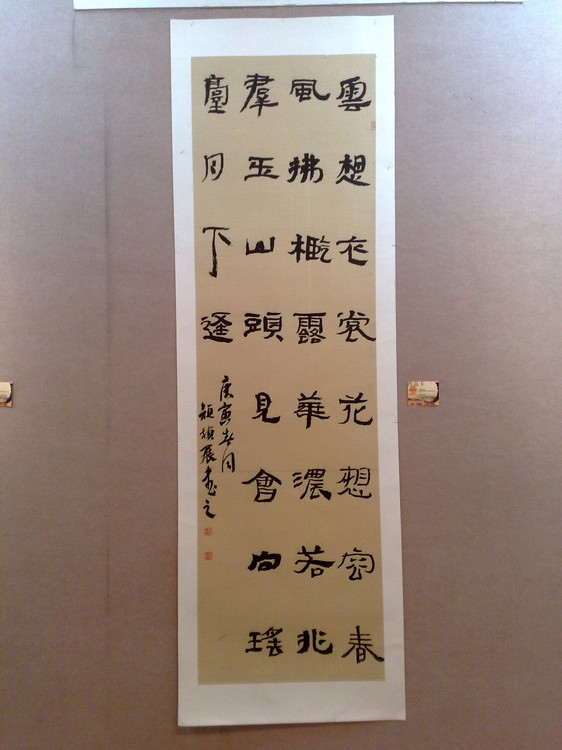 雲想衣裳花想容春
風拂檻露華濃若非
羣玉山頭見會向瑤
臺月下逢
庚寅春月
書之